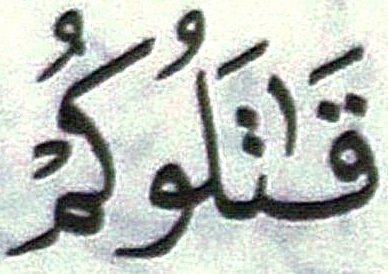 قَـٰتَلُوكُمْ